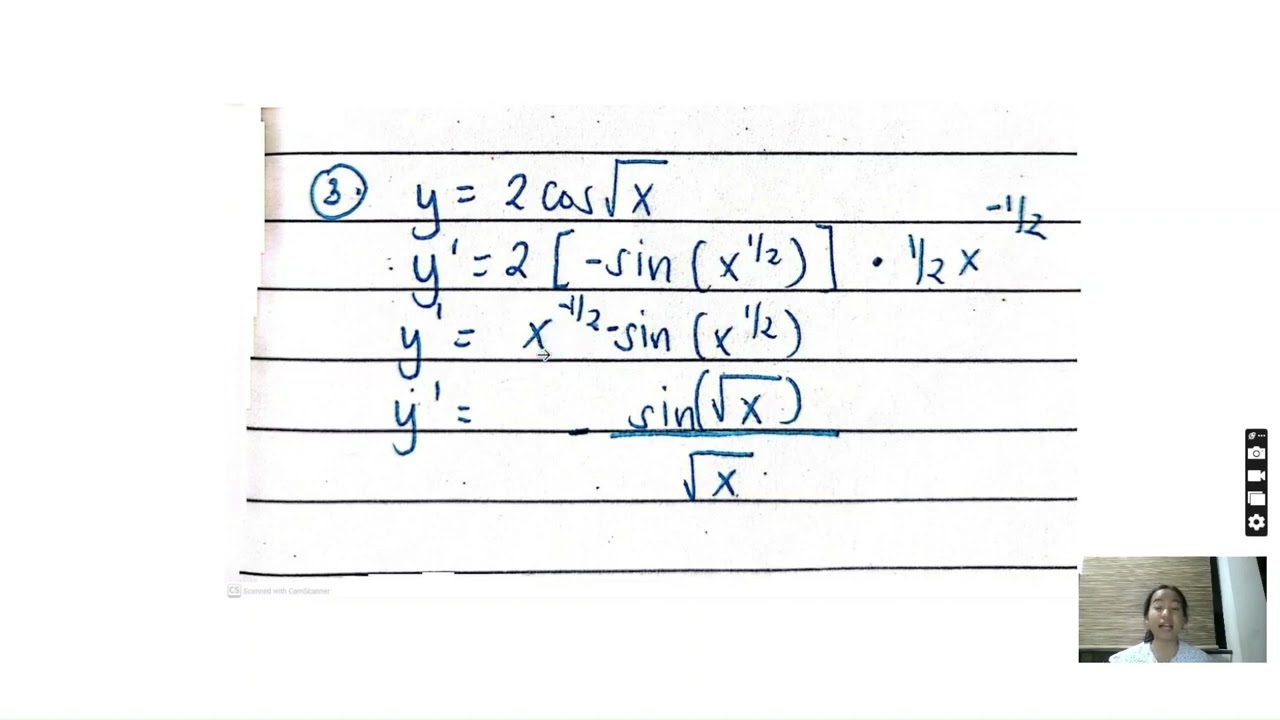 3. y = 2 cos √x
y' = 2 [-sin (x^1/2)] • 1/2 x^-1/2
y' = x^-1/2 -sin (x^1/2)
y' = - sin(√x) / √x
CS Scanned with CamScanner